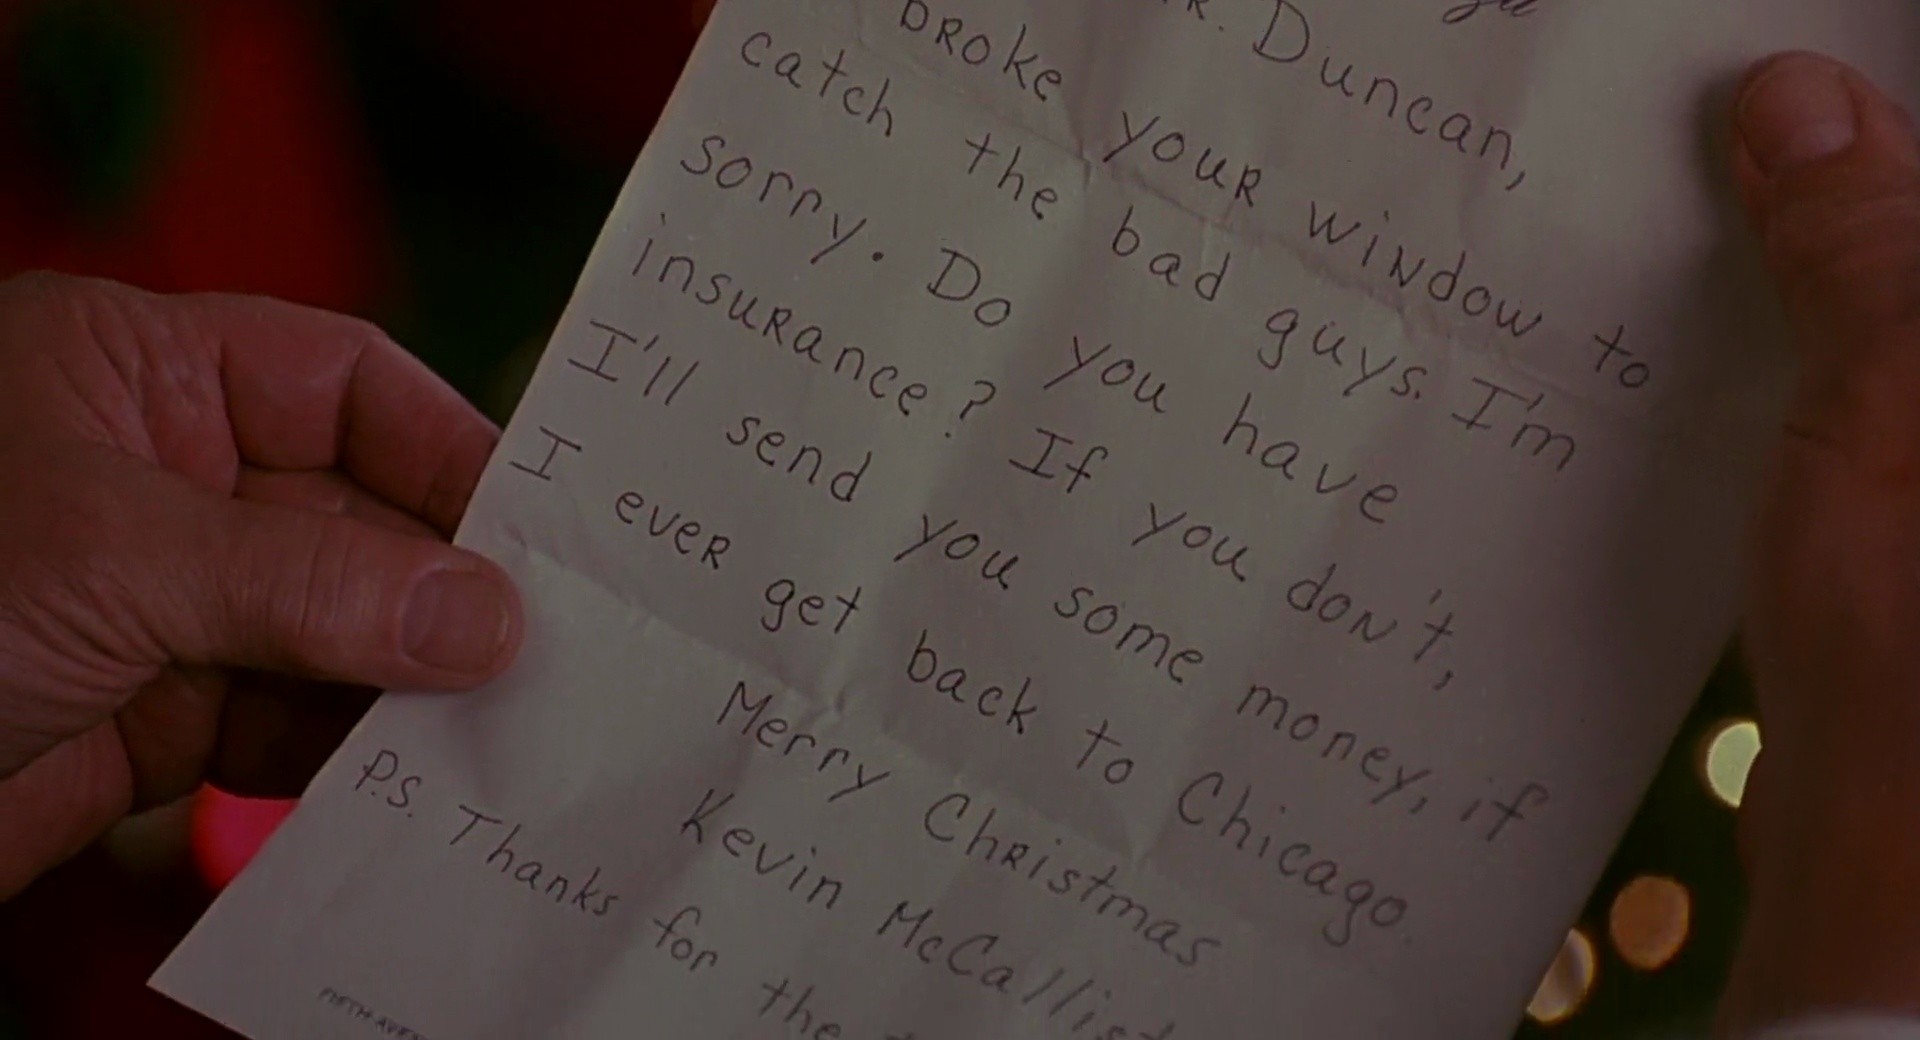 Duncan,
broke your window to
catch the bad guys. I'm
sorry. Do you have
insurance? If you don't,
I'll send you some money, if
I ever get back to Chicago.
Merry Christmas
Kevin
P.S. Thanks for the